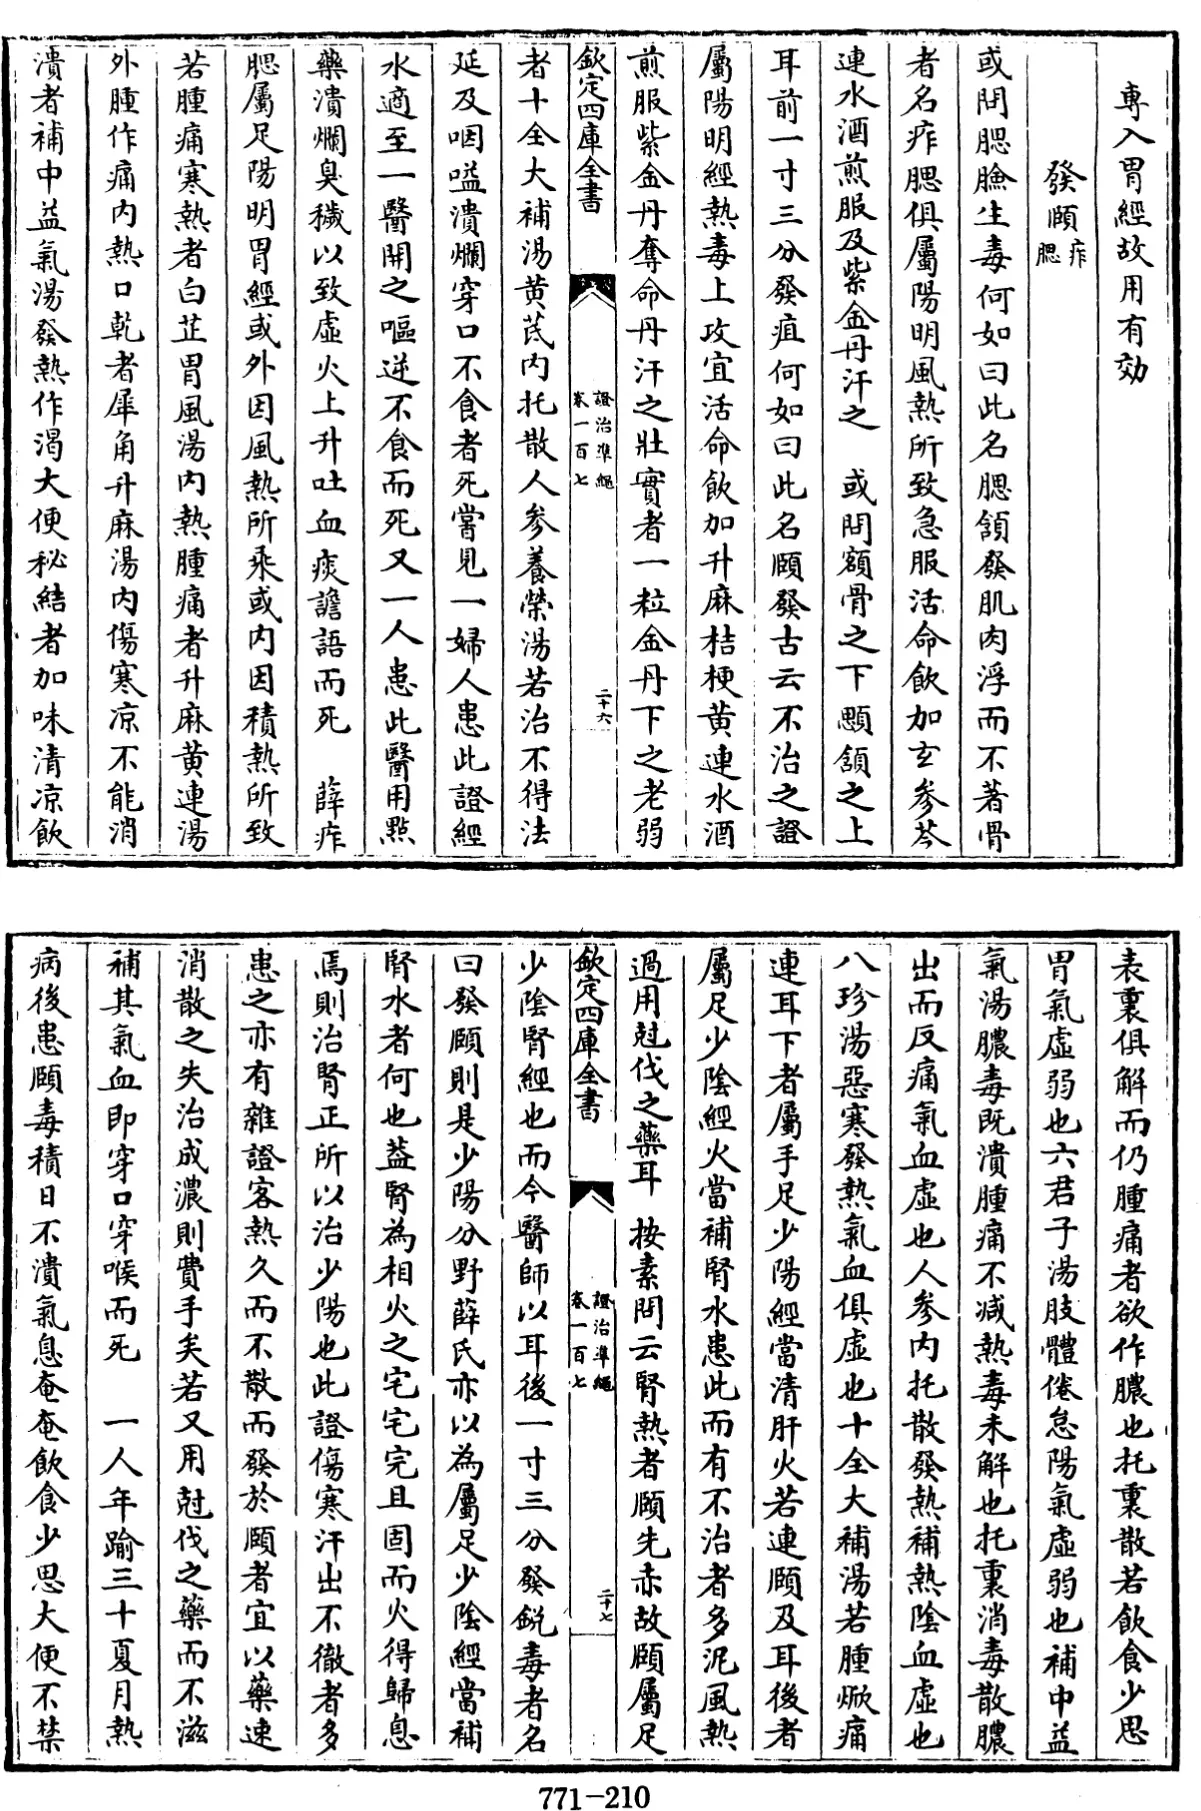 專入胃經故用有効
發頤痄腮
或問腮臉生毒何如曰此名腮頷發肌肉浮而不著骨
者名痄腮俱屬陽明風熱所致急服活命飲加玄參芩
連水酒煎服及紫金丹汗之　或問額骨之下顋頷之上
耳前一寸三分發疽何如曰此名頤發古云不治之證
屬陽明經熱毒上攻宜活命飲加升麻桔梗黄連水酒
煎服紫金丹奪命丹汗之壯實者一粒金丹下之老弱
欽定四庫全書　證治準繩卷一百七　二十六
者十全大補湯黄芪内托散人參養榮湯若治不得法
延及咽嗌潰爛穿口不食者死嘗見一婦人患此證經
水適至一醫開之嘔逆不食而死又一人患此醫用㸃
藥潰爛臭穢以致虛火上升吐血痰譫語而死　薛痄
腮屬足陽明胃經或外因風熱所乘或内因積熱所致
若腫痛寒熱者白芷胃風湯内熱腫痛者升麻黄連湯
外腫作痛内熱口乾者犀角升麻湯内傷寒凉不能消
潰者補中益氣湯發熱作渴大便秘結者加味清凉飲
表裏俱解而仍腫痛者欲作膿也托裏散若飲食少思
胃氣虛弱也六君子湯肢體倦怠陽氣虛弱也補中益
氣湯膿毒既潰腫痛不減熱毒未解也托裏消毒散膿
出而反痛氣血虛也人參内托散發熱補熱陰血虛也
八珍湯惡寒發熱氣血俱虛也十全大補湯若腫焮痛
連耳下者屬手足少陽經當清肝火若連頤及耳後者
屬足少陰經火當補腎水患此而有不治者多泥風熱
過用尅伐之藥耳　按素問云腎熱者頤先赤故頤屬足
欽定四庫全書　證治準繩卷一百七　二十七
少陰腎經也而今醫師以耳後一寸三分發銳毒者名
曰發頤則是少陽分野薛氏亦以為屬足少陰經當補
腎水者何也葢腎為相火之宅宅完且固而火得歸息
焉則治腎正所以治少陽也此證傷寒汗出不徹者多
患之亦有雜證客熱久而不散而發於頤者宜以藥速
消散之失治成濃則費手矣若又用尅伐之藥而不滋
補其氣血即穿口穿喉而死　一人年踰三十夏月熱
病後患頤毒積日不潰氣息奄奄飲食少思大便不禁
771-210